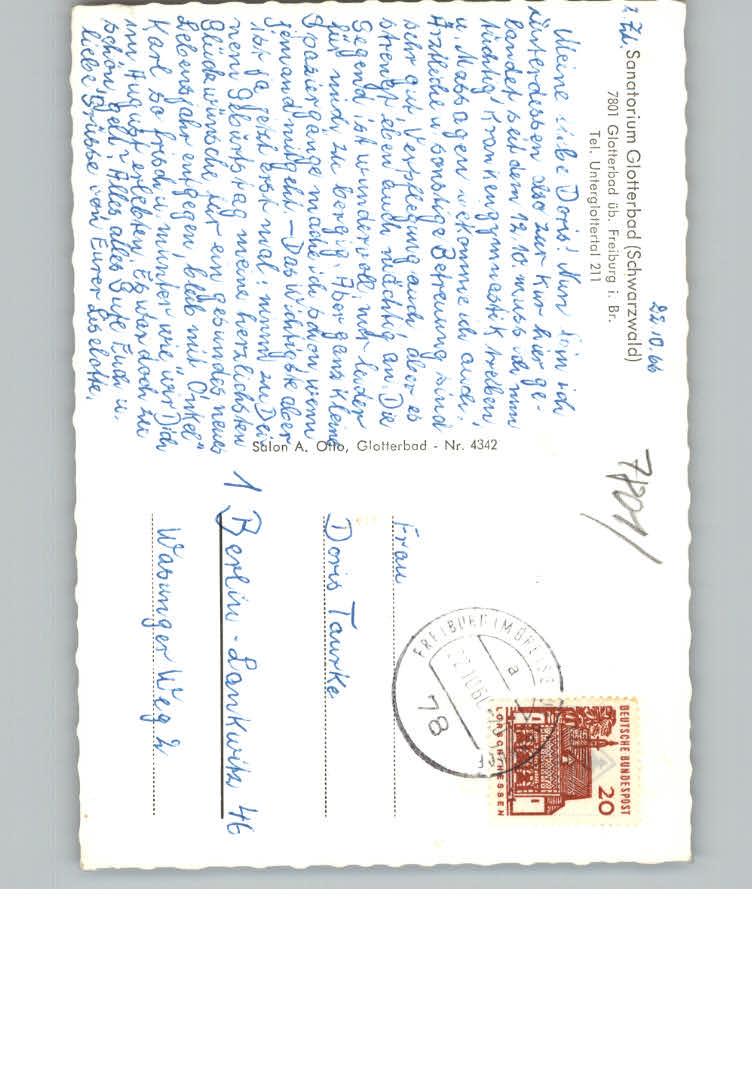 z. Zt. Sanatorium Glotterbad (Schwarzwald)
7801 Glotterbad üb. Freiburg i. Br.
Tel. Unterglottertal 211
22.10.66
Meine liebe Doris! Nun bin ich
unterdessen also zur Kur hier ge-
landet seit dem 12.10. muss ich nun
tüchtig Krankengymnastik treiben,
u. Massagen bekomme ich auch.
Ärztliche u. sonstige Betreuung sind
sehr gut, Verpflegung auch, aber es
strengt eben auch mächtig an. Die
Gegend ist wundervoll, nur leider
für mich zu bergig. Aber ganz kleine
Spaziergänge mache ich schon, wenn
jemand mitgeht. – Das Wichtigste aber
ist ja jetzt erst mal: nimm zu Dei-
nem Geburtstag meine herzlichsten
Glückwünsche für ein gesundes neues
Lebensjahr entgegen, bleib mit "Onkel"
Karl so frisch u. munter wie wir Dich
im August erlebten. Es war doch zu
schön, gell? Alles alles Gute Euch u.
liebe Grüsse von Eurer Liselotte.
Salon A. Otto, Glotterbad - Nr. 4342
7801/
Frau
Doris Taurke
1 Berlin-Lankwitz 46
Wasunger Weg 2
FREIBURG IM BREISG
a
22.10.66
78
DEUTSCHE BUNDESPOST
20
LORSCH/HESSEN